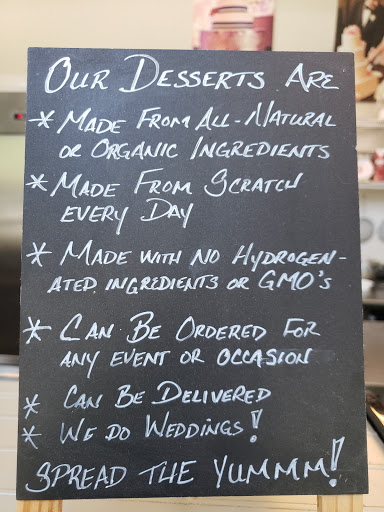 Our Desserts Are
* Made From All-Natural
or Organic Ingredients
* Made From Scratch
every Day
* Made with no Hydrogen-
ated ingredients or GMO's
* Can Be Ordered For
any event or occasion
* Can Be Delivered
* We do Weddings!
Spread the Yummm!